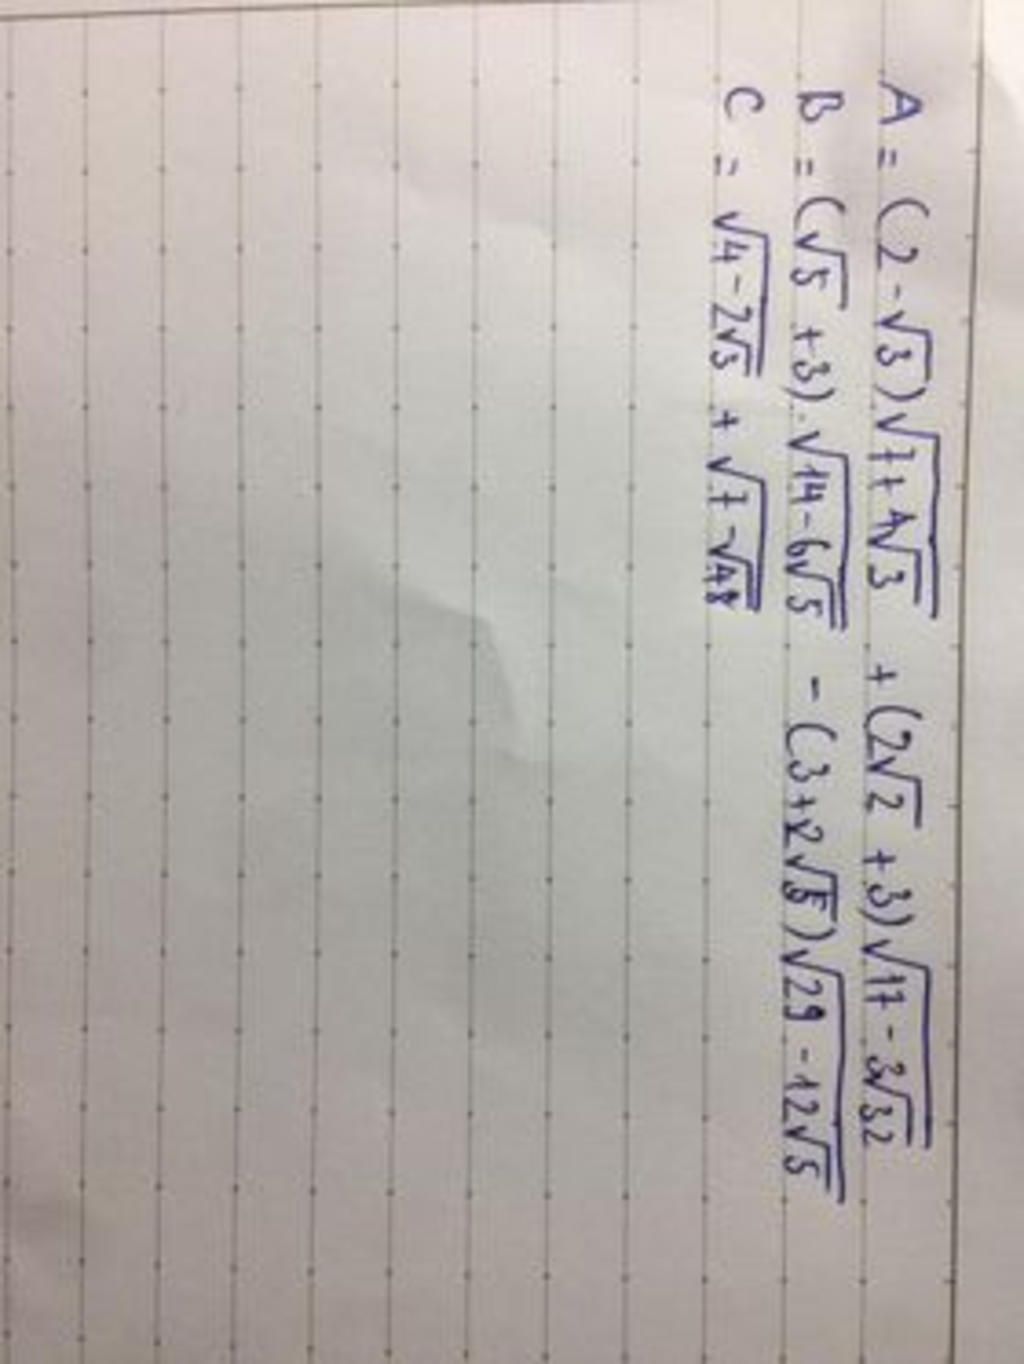 A = (2-√3)√(7+4√3) + (2√2+3)√(17-3√32)
B = (√5+3).√(14-6√5) - (3+2√5)√(29-12√5)
C = √(4-2√3) + √(7-√48)